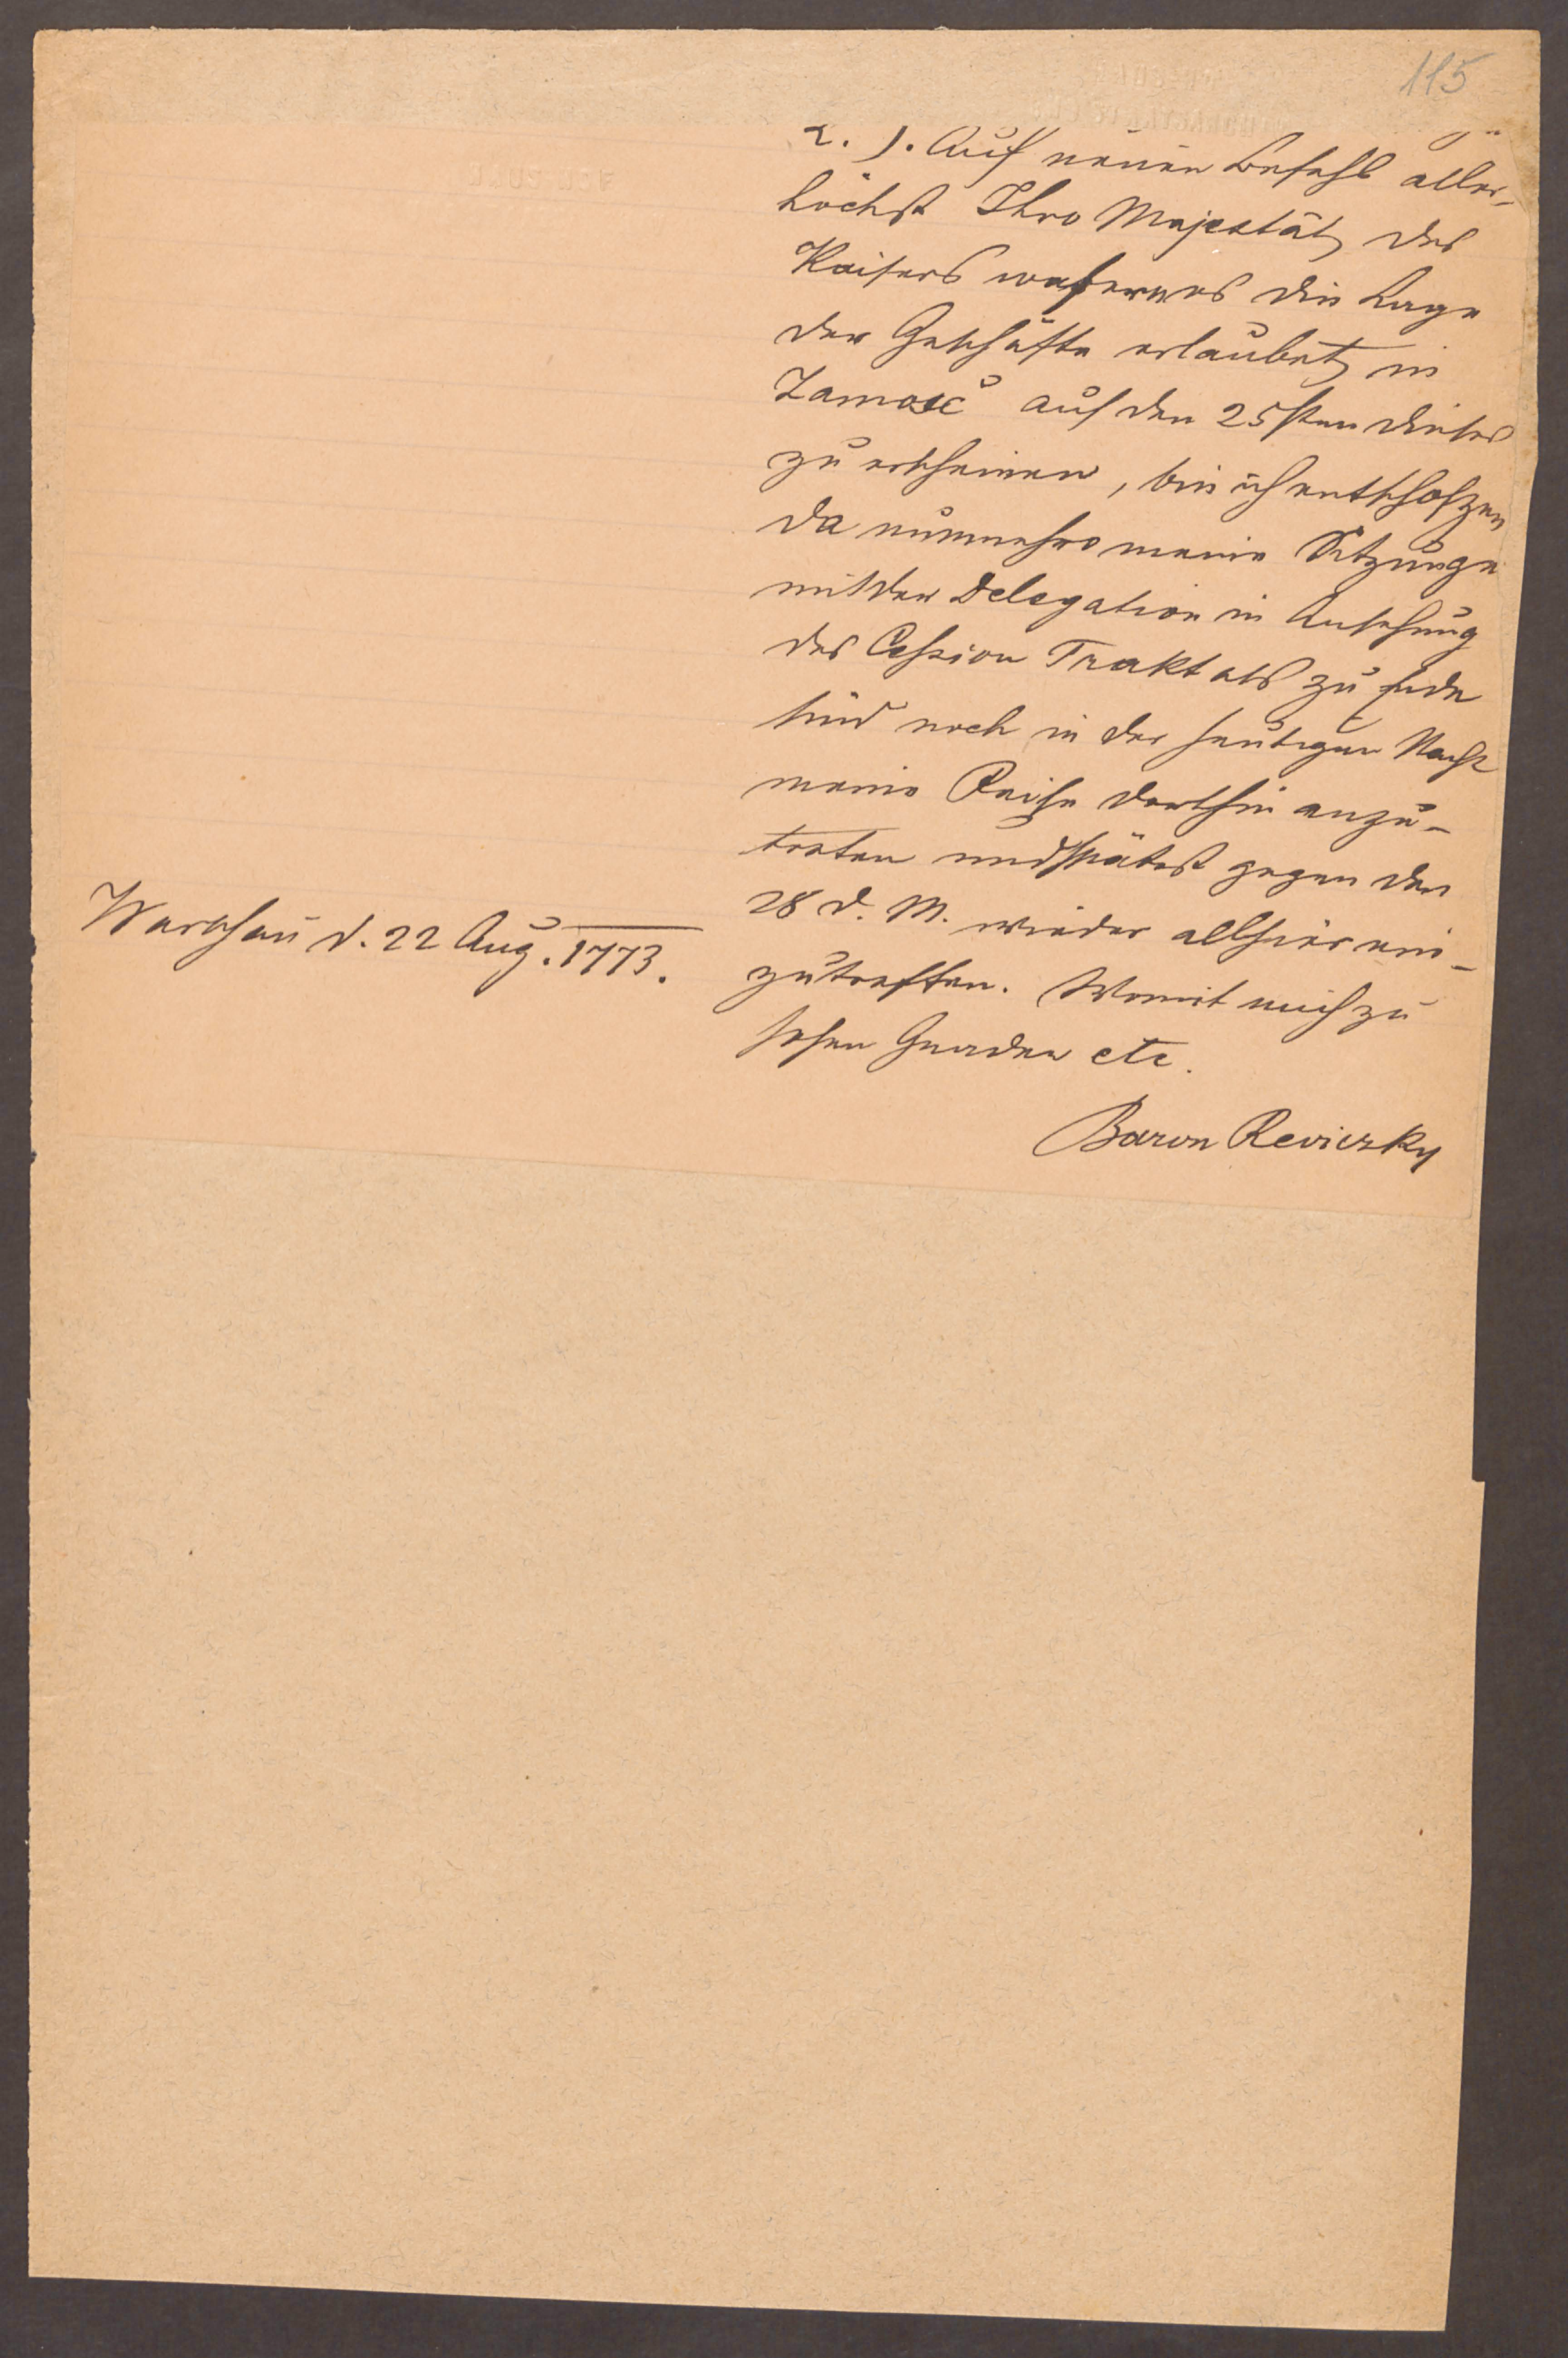 115
2. J. Auf neuen Befehl aller-
höchst Ihro Majestät des
Kaisers wofern es die Lage
der Geschäfte erlaubet in
Zamość auf den 25sten dieses
zu erscheinen, bin ich entschloßen
da nunmehro meine Sitzunge
mit der Delegation in Ansehung
des Cession Traktats zu Ende
sind noch in der heutigen Nacht
meine Reise dorthin anzu-
treten und spätest gegen den
28 d. M. wieder allhier ein-
zutreffen. Womit mich zu
hohen Gnaden etc.
Warschau d. 22 Aug. 1773.
Baron Reviczky